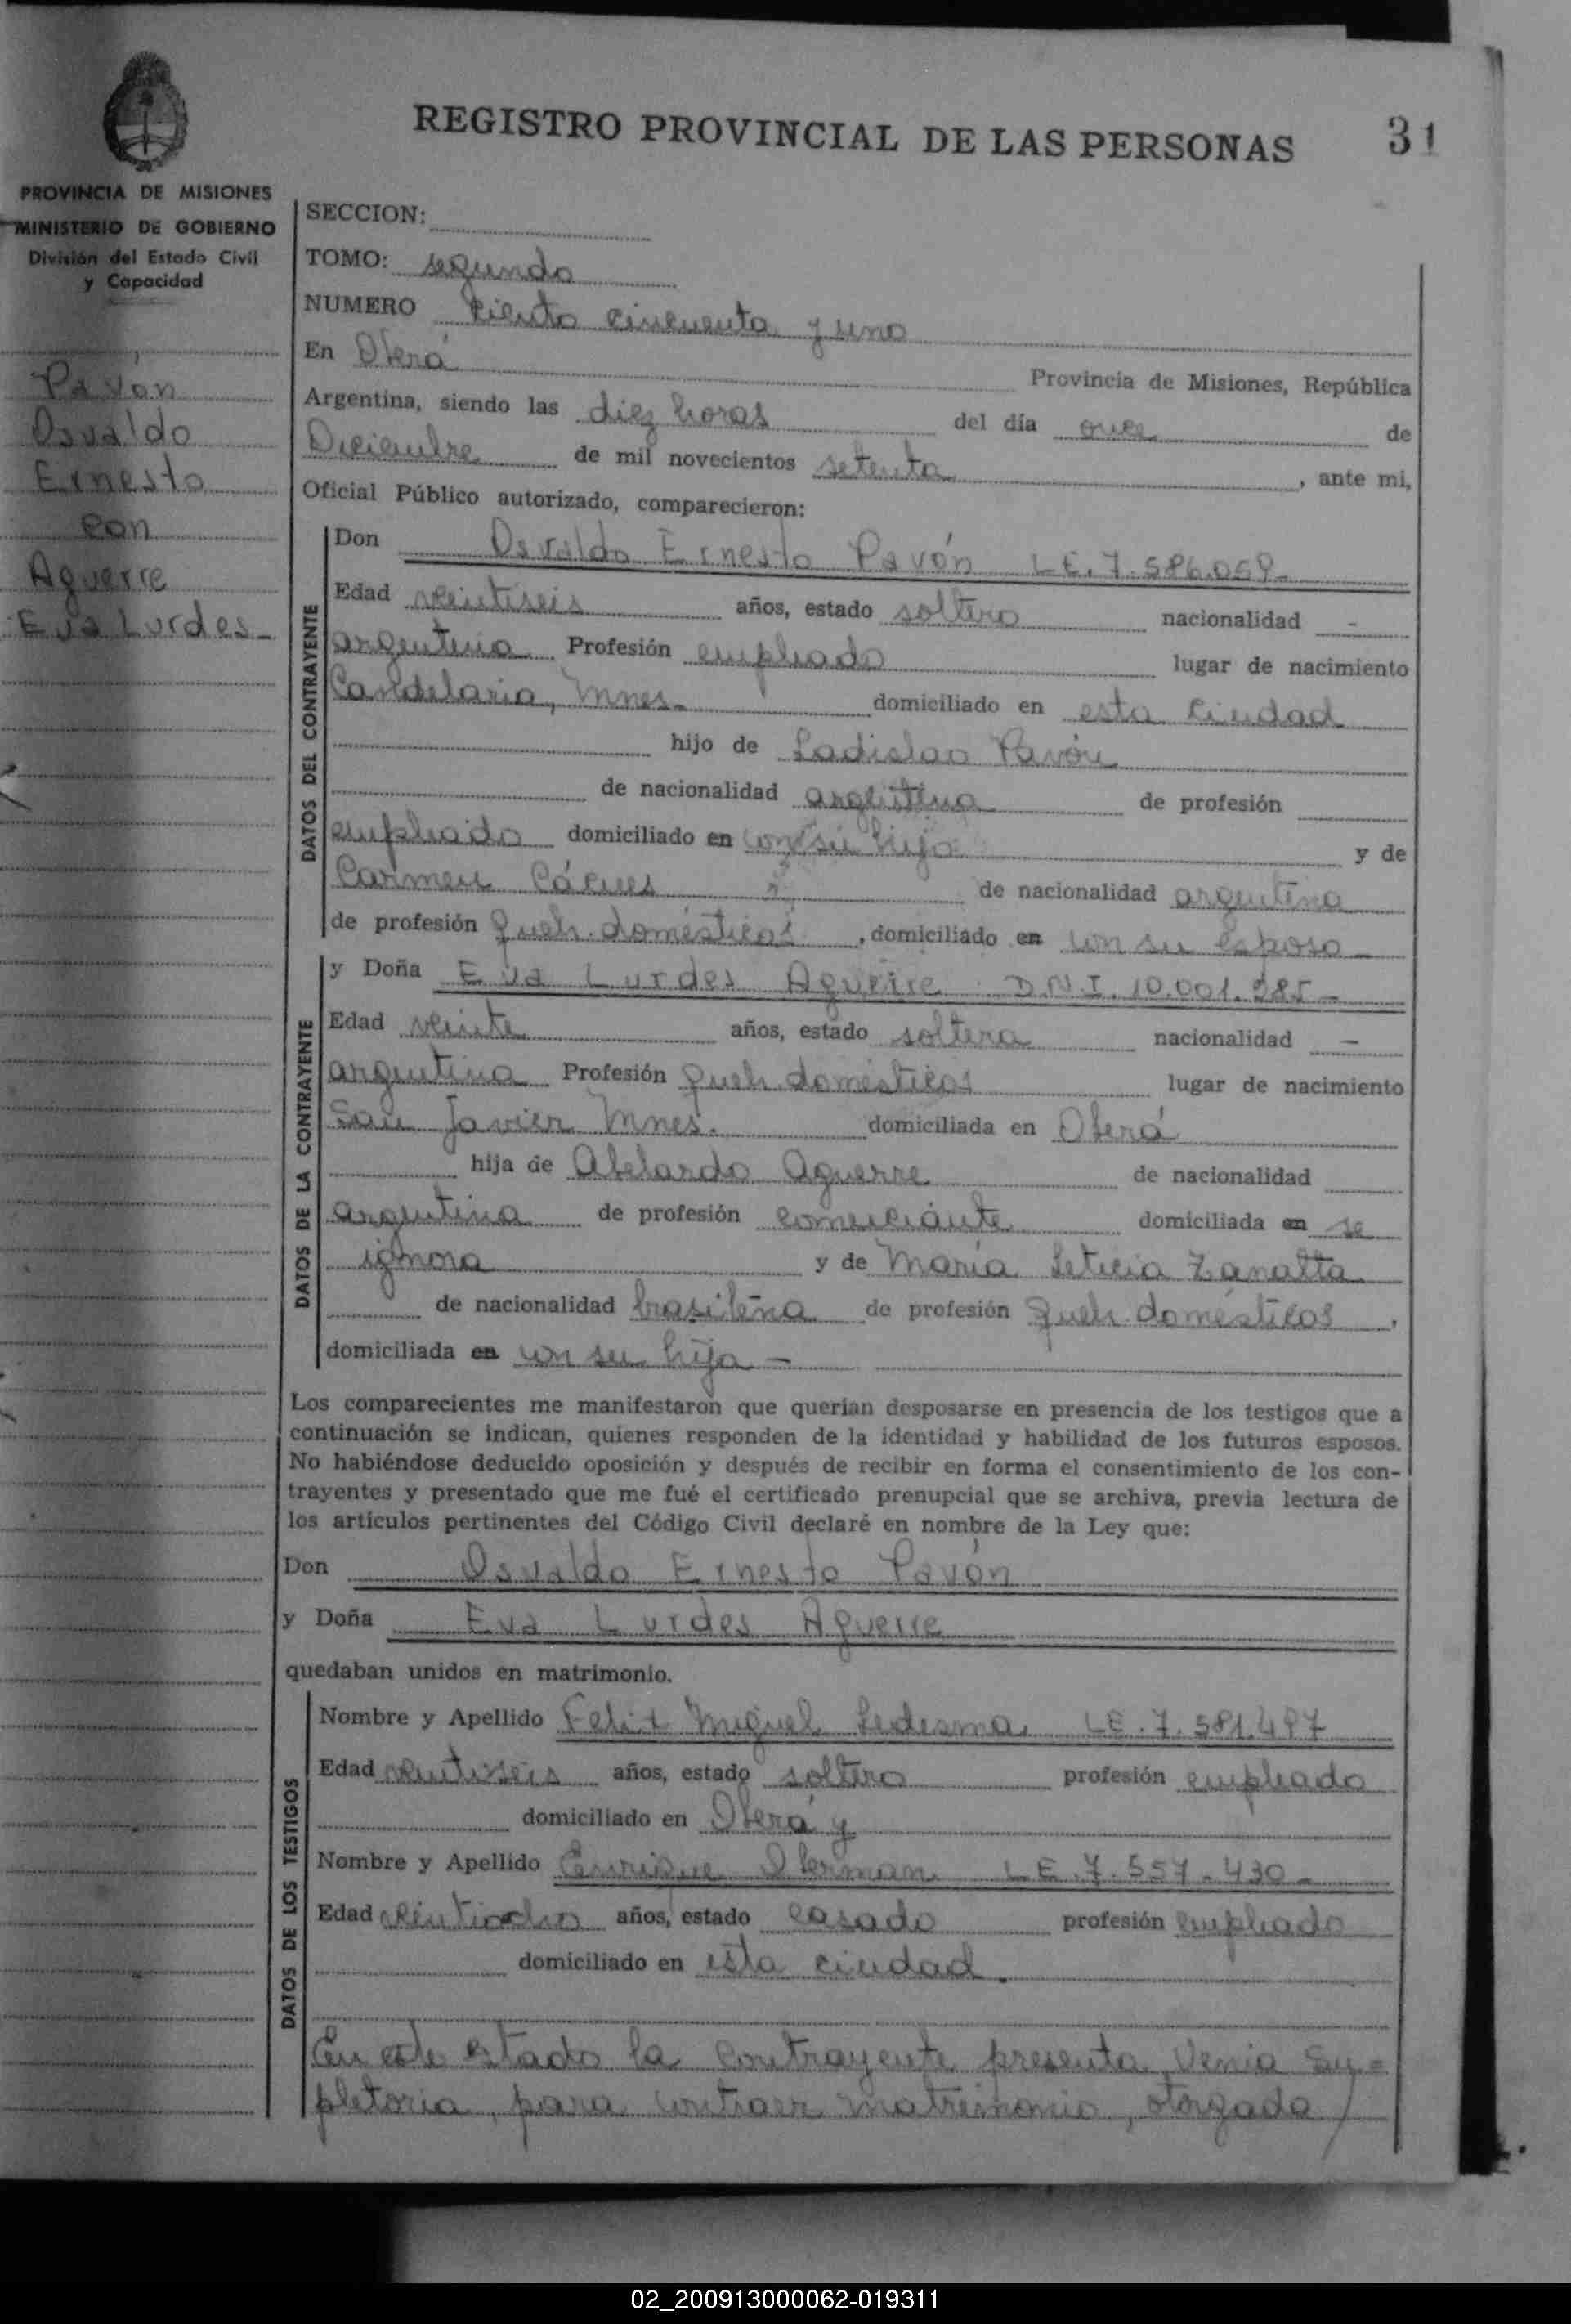 REGISTRO PROVINCIAL DE LAS PERSONAS 31
PROVINCIA DE MISIONES
MINISTERIO DE GOBIERNO
División del Estado Civil
y Capacidad
Pavón
Osvaldo
Ernesto
con
Aguerre
Eva Lurdes-
SECCION:
TOMO: segundo
NUMERO ciento cincuenta y uno
En Oberá Provincia de Misiones, República
Argentina, siendo las diez horas del día once de
Diciembre de mil novecientos setenta, ante mi,
Oficial Público autorizado, comparecieron:
DATOS DEL CONTRAYENTE
Don Osvaldo Ernesto Pavón LE. 7.586.059-
Edad veintiseis años, estado soltero nacionalidad -
argentina Profesión empleado lugar de nacimiento
Candelaria, Mnes- domiciliado en esta ciudad
hijo de Ladislao Pavón
de nacionalidad argentina de profesión
empleado domiciliado en con su hijo y de
Carmen de nacionalidad argentina
de profesión queh. domésticos, domiciliado en con su esposo-
DATOS DE LA CONTRAYENTE
y Doña Eva Lurdes Aguerre D.N.I. 10.001.285-
Edad veinte años, estado soltera nacionalidad -
argentina Profesión queh. domésticos lugar de nacimiento
San Javier Mnes. domiciliada en Oberá
hija de Abelardo Aguerre de nacionalidad
argentina de profesión comerciante domiciliada en se
ignora y de María Leticia Zanatta
de nacionalidad brasileña de profesión queh. domésticos,
domiciliada en con su hija -
Los comparecientes me manifestaron que querían desposarse en presencia de los testigos que a
continuación se indican, quienes responden de la identidad y habilidad de los futuros esposos.
No habiéndose deducido oposición y después de recibir en forma el consentimiento de los con-
trayentes y presentado que me fué el certificado prenupcial que se archiva, previa lectura de
los artículos pertinentes del Código Civil declaré en nombre de la Ley que:
Don Osvaldo Ernesto Pavón
y Doña Eva Lurdes Aguerre
quedaban unidos en matrimonio.
DATOS DE LOS TESTIGOS
Nombre y Apellido Felix Miguel Ledesma LE. 7.581.497
Edad veintiseis años, estado soltero profesión empleado
domiciliado en Oberá y
Nombre y Apellido Enrique Oberman LE. 7.557.430-
Edad veintiocho años, estado casado profesión empleado
domiciliado en esta ciudad.
En este estado la contrayente presenta Venia Su=
pletoria, para contraer matrimonio, otorgada /
02_200913000062-019311